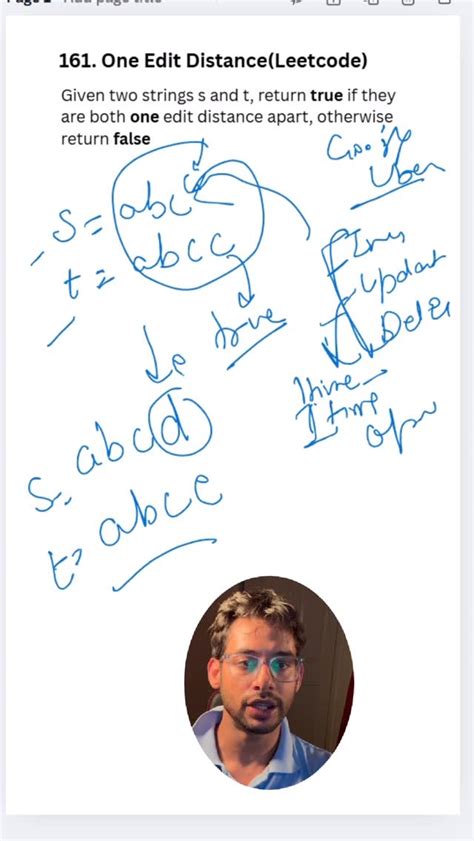 Page 2
161. One Edit Distance(Leetcode)
Given two strings s and t, return true if they
are both one edit distance apart, otherwise
return false
Google
Uber
s = abc
t = abcc
true
Update
Delete
1 time
1 time
s. abcd
t = abcc